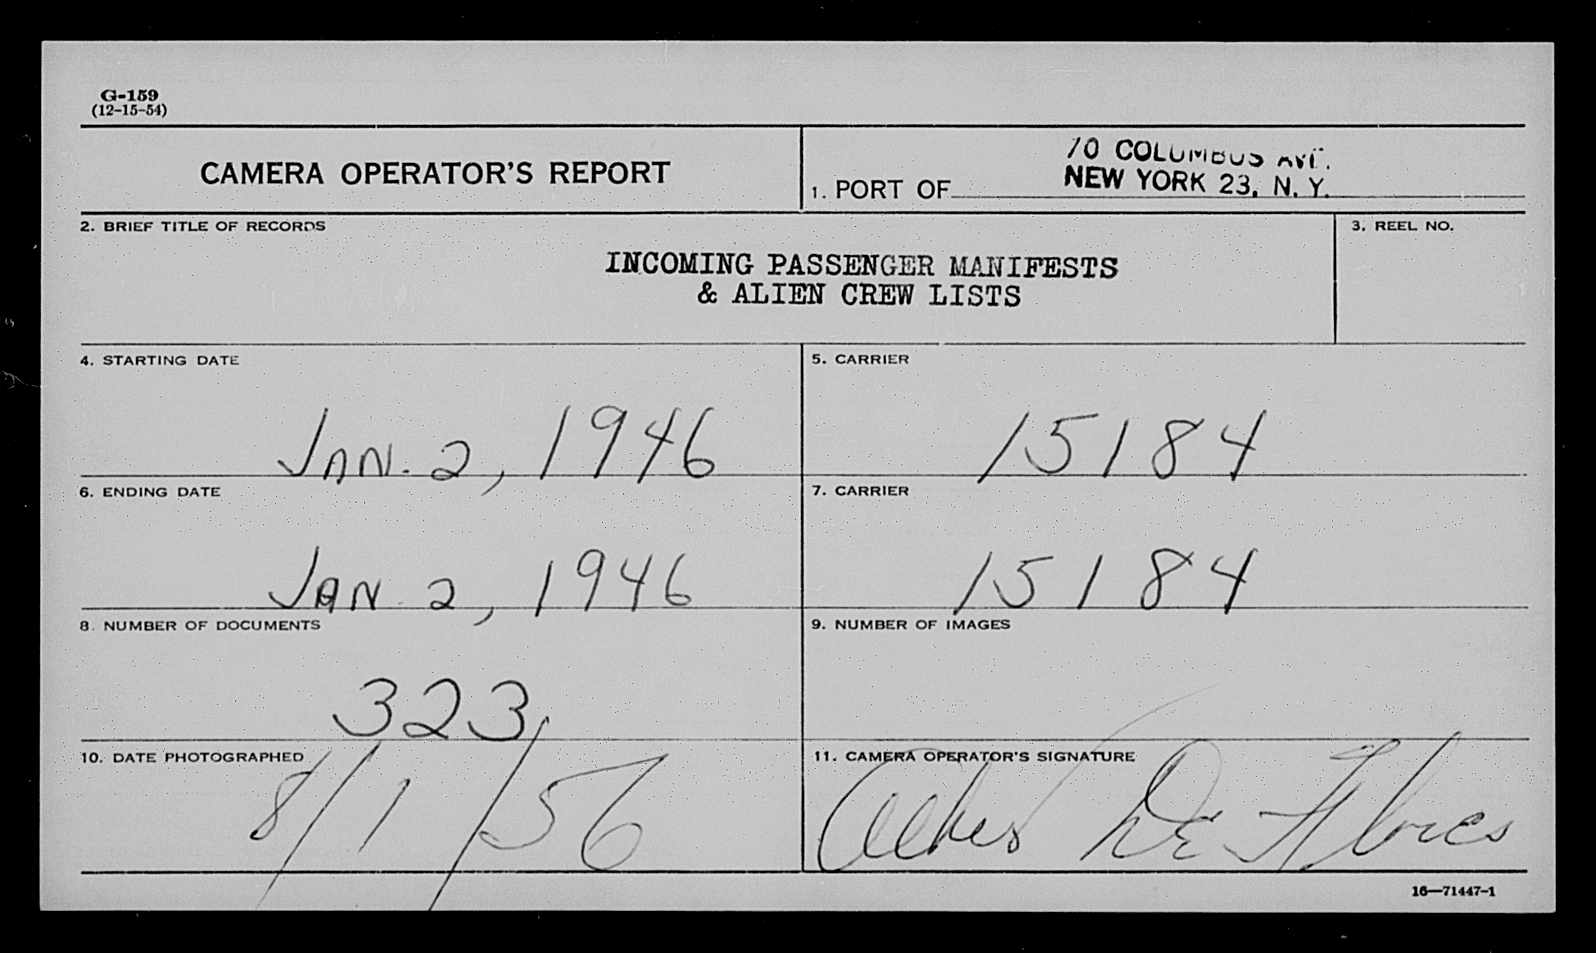 G-159
(12-15-54)
CAMERA OPERATOR'S REPORT
70 COLUMBUS AVE.
1. PORT OF NEW YORK 23, N. Y.
2. BRIEF TITLE OF RECORDS
3. REEL NO.
INCOMING PASSENGER MANIFESTS
& ALIEN CREW LISTS
4. STARTING DATE
5. CARRIER
JAN. 2, 1946
15184
6. ENDING DATE
7. CARRIER
JAN 2, 1946
15184
8. NUMBER OF DOCUMENTS
9. NUMBER OF IMAGES
323
10. DATE PHOTOGRAPHED
11. CAMERA OPERATOR'S SIGNATURE
8/1/56
De Flores
16—71447-1